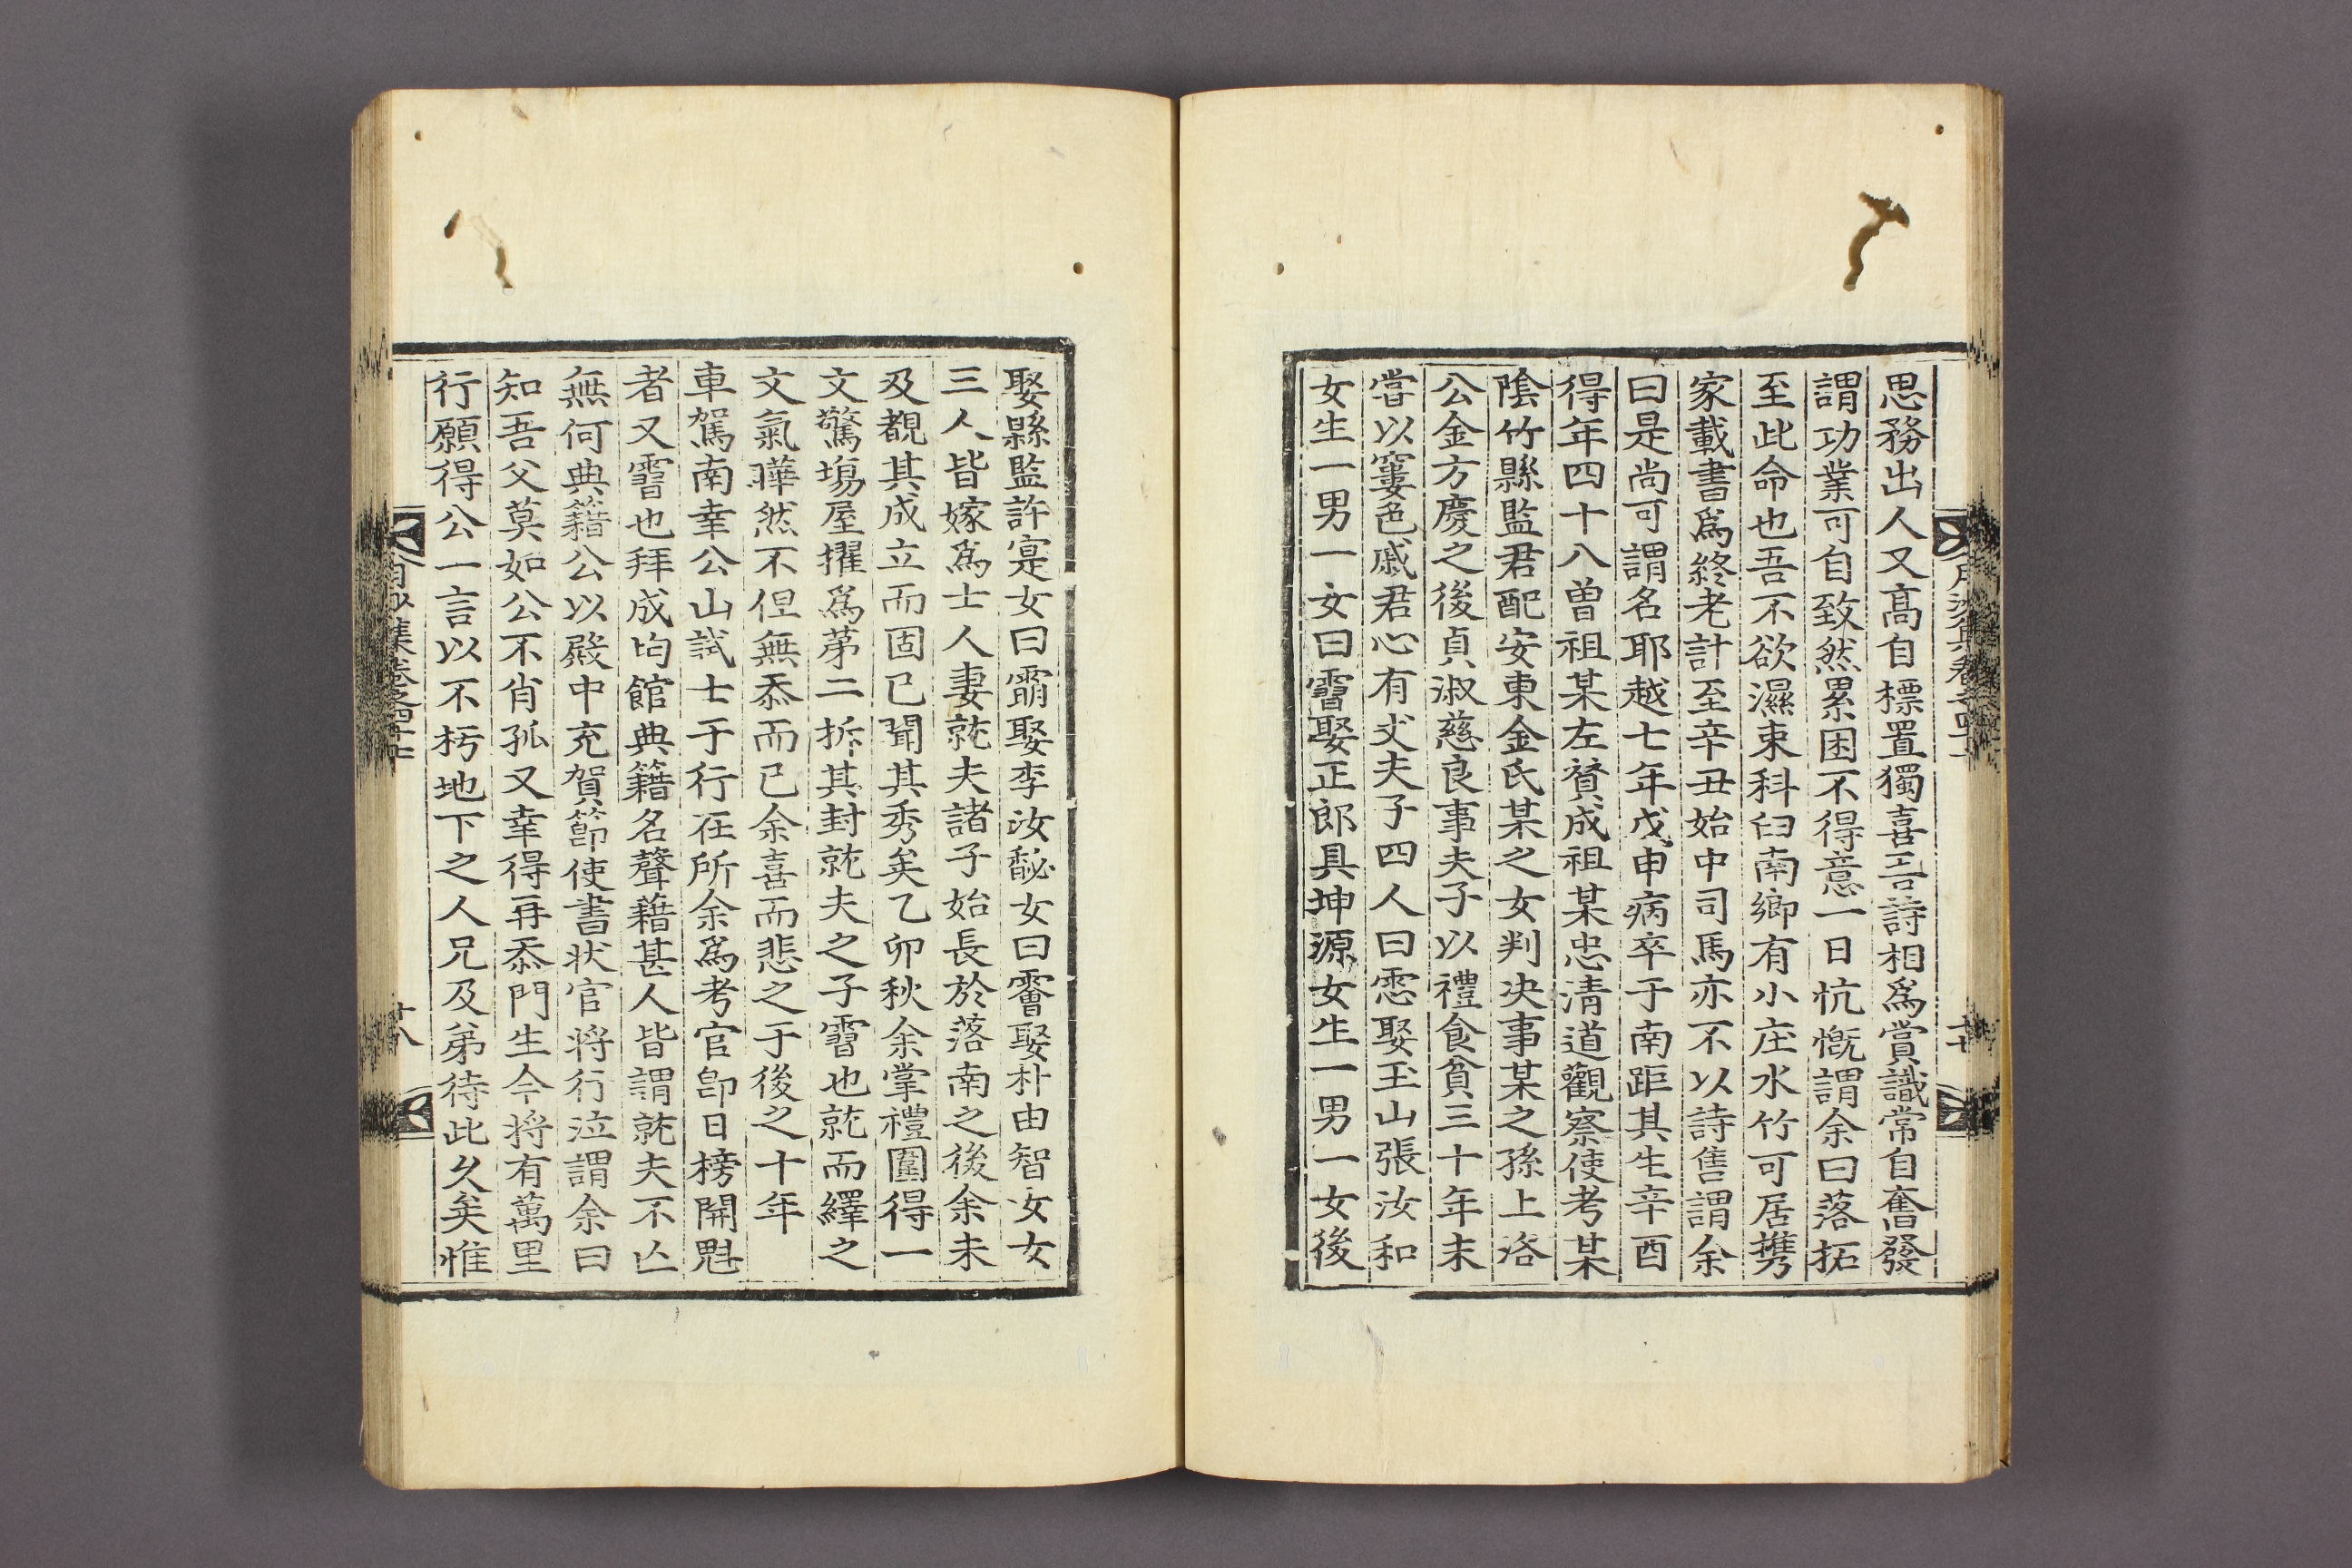 思務出人又高自標置獨喜吾詩相爲賞識常自奮發
謂功業可自致然累困不得意一日忼慨謂余曰落拓
至此命也吾不欲濕束科臼南鄉有小庄水竹可居携
家載書爲終老計至辛丑始中司馬亦不以詩售謂余
曰是尚可謂名耶越七年戊申病卒于南距其生辛酉
得年四十八曾祖某左贊成祖某忠淸道觀察使考某
陰竹縣監君配安東金氏某之女判决事某之孫上洛
公金方慶之後貞淑慈良事夫子以禮食貧三十年未
嘗以窶色戚君心有丈夫子四人曰霐娶玉山張汝和
女生一男一女曰霫娶正郎具坤源女生一男一女後
月沙集卷之四十七
十七
娶縣監許寔女曰霌娶李汝馝女曰霱娶朴由智女女
三人皆嫁爲士人妻就夫諸子始長於落南之後余未
及覩其成立而固已聞其秀矣乙卯秋余掌禮圍得一
文驚塲屋擢爲苐二拆其封就夫之子霫也就而繹之
文氣曄然不但無忝而已余喜而悲之于後之十年
車駕南幸公山試士于行在所余爲考官卽日榜開魁
者又霫也拜成均館典籍名聲藉甚人皆謂就夫不亾
無何典籍公以殿中充賀節使書狀官將行泣謂余曰
知吾父莫如公不肖孤又幸得再忝門生今將有萬里
行願得公一言以不朽地下之人兄及弟待此久矣惟
月沙集卷之四十七
十八